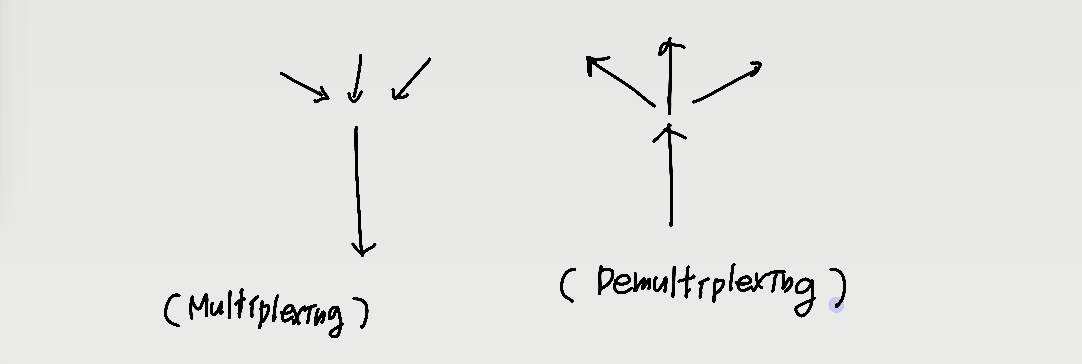 (Multiplexing)
(Demultiplexing)